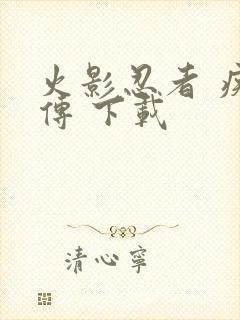 火影忍者
傳 下載
清心寧